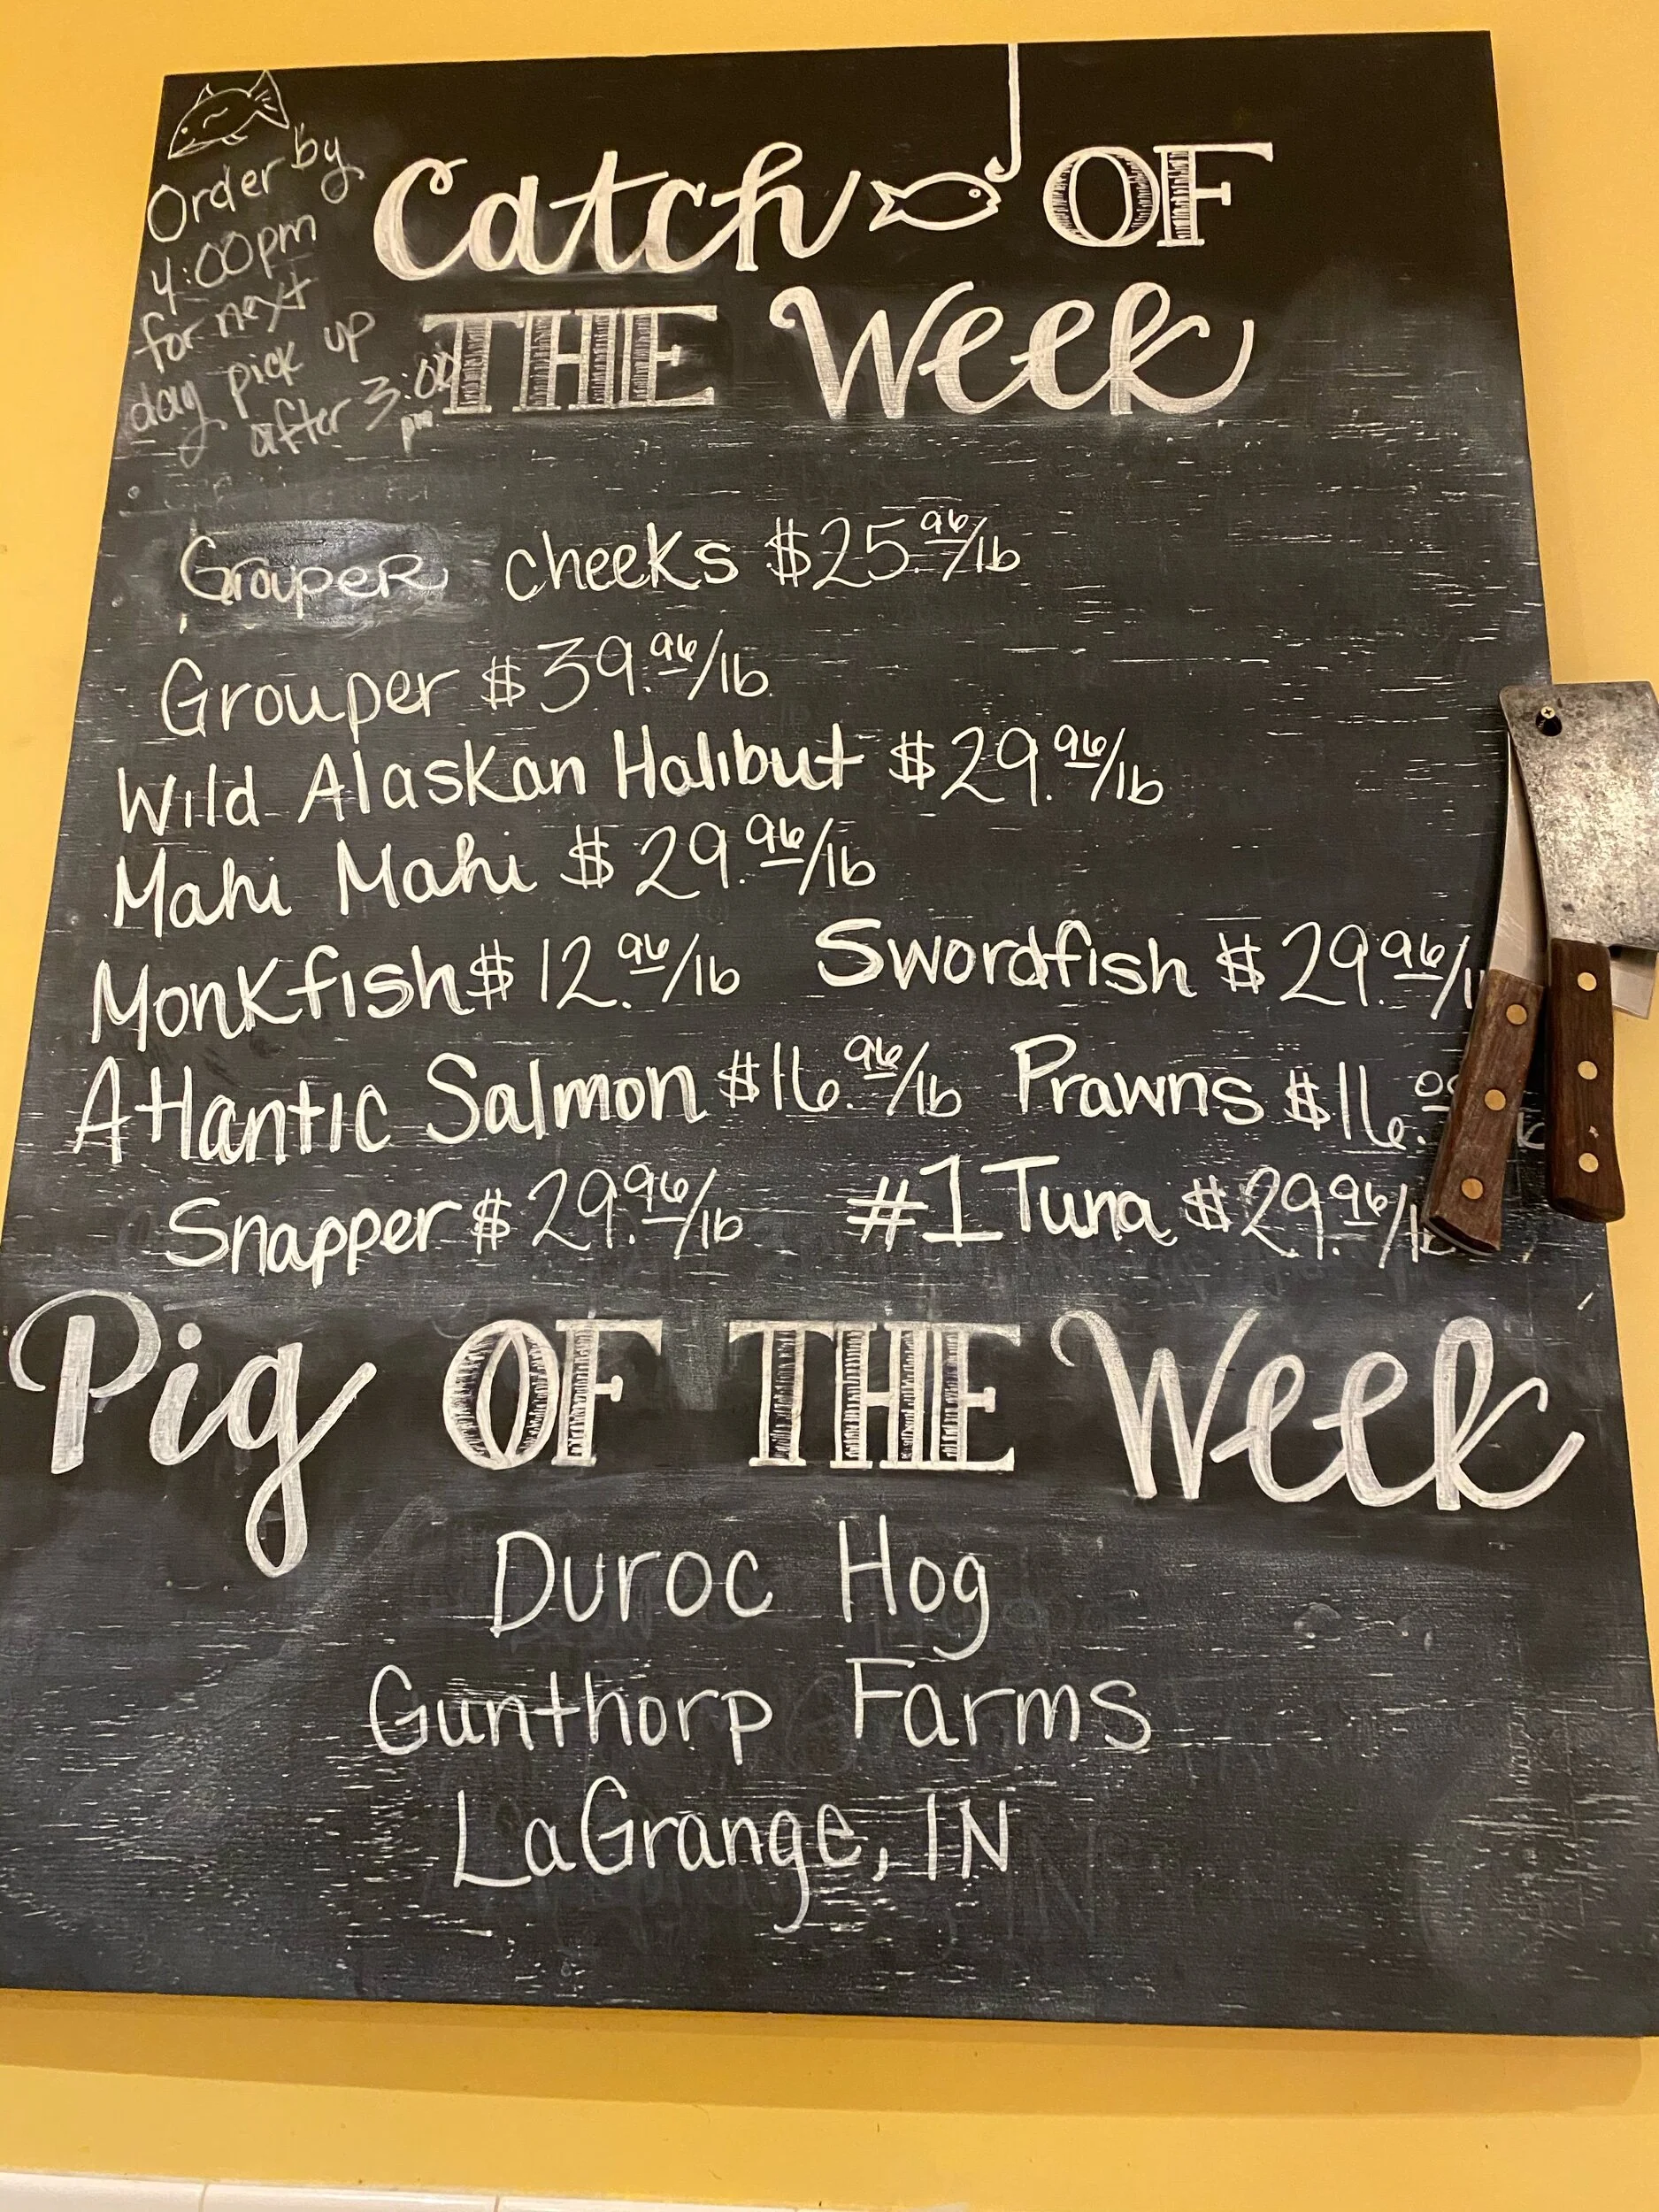 Order by
4:00pm
for next
day pick up
after 3:00
pm
Catch OF
THE Week
Grouper cheeks $25.96/lb
Grouper $39.96/lb
Wild Alaskan Halibut $29.96/lb
Mahi Mahi $29.96/lb
Monkfish $12.96/lb Swordfish $29.96/l
Atlantic Salmon $16.96/lb Prawns $16.
Snapper $29.96/lb #1 Tuna $29.96/lb
Pig OF THE Week
Duroc Hog
Gunthorp Farms
LaGrange, IN